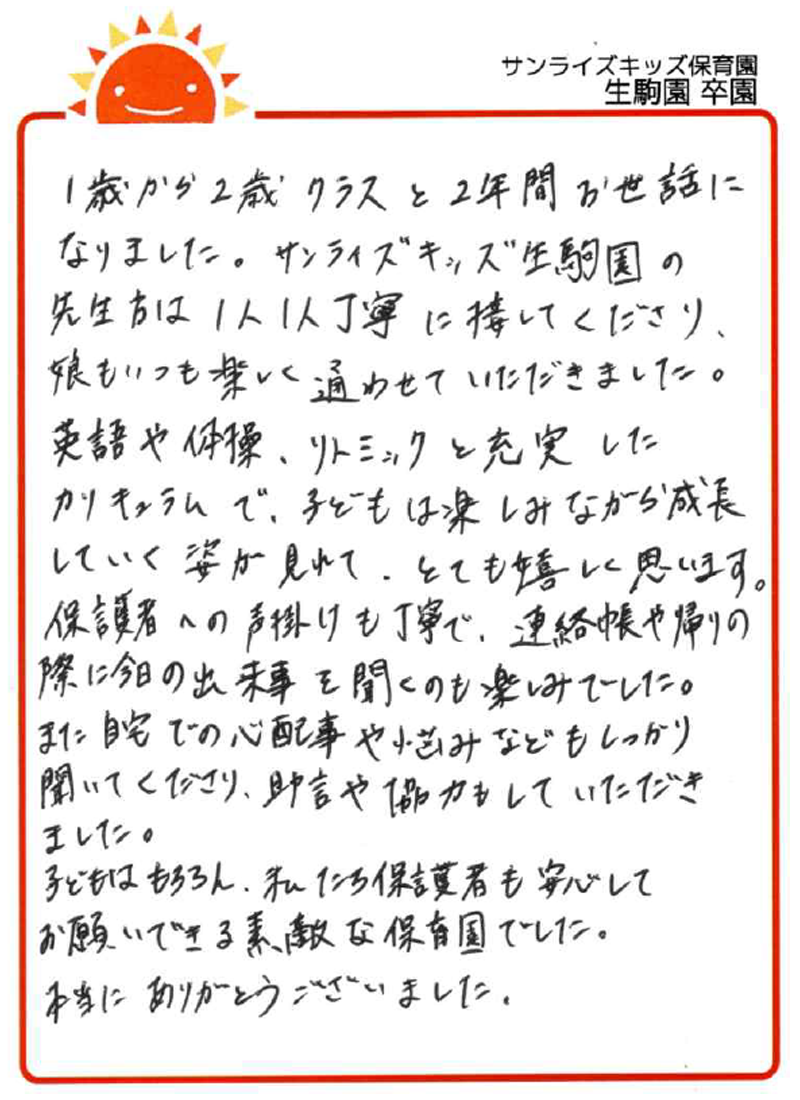 サンライズキッズ保育園
生駒園 卒園
1歳から2歳クラスと2年間お世話に
なりました。サンライズキッズ生駒園の
先生方は1人1人丁寧に接してくださり、
娘もいつも楽しく通わせていただきました。
英語や体操、リトミックと充実した
カリキュラムで、子どもは楽しみながら成長
していく姿が見れて、とても嬉しく思います。
保護者への声掛けも丁寧で、連絡帳や帰りの
際に今日の出来事を聞くのも楽しみでした。
また自宅での心配事や悩みなどもしっかり
聞いてくださり、助言や協力もしていただき
ました。
子どもはもちろん、私たち保護者も安心して
お願いできる素敵な保育園でした。
本当にありがとうございました。